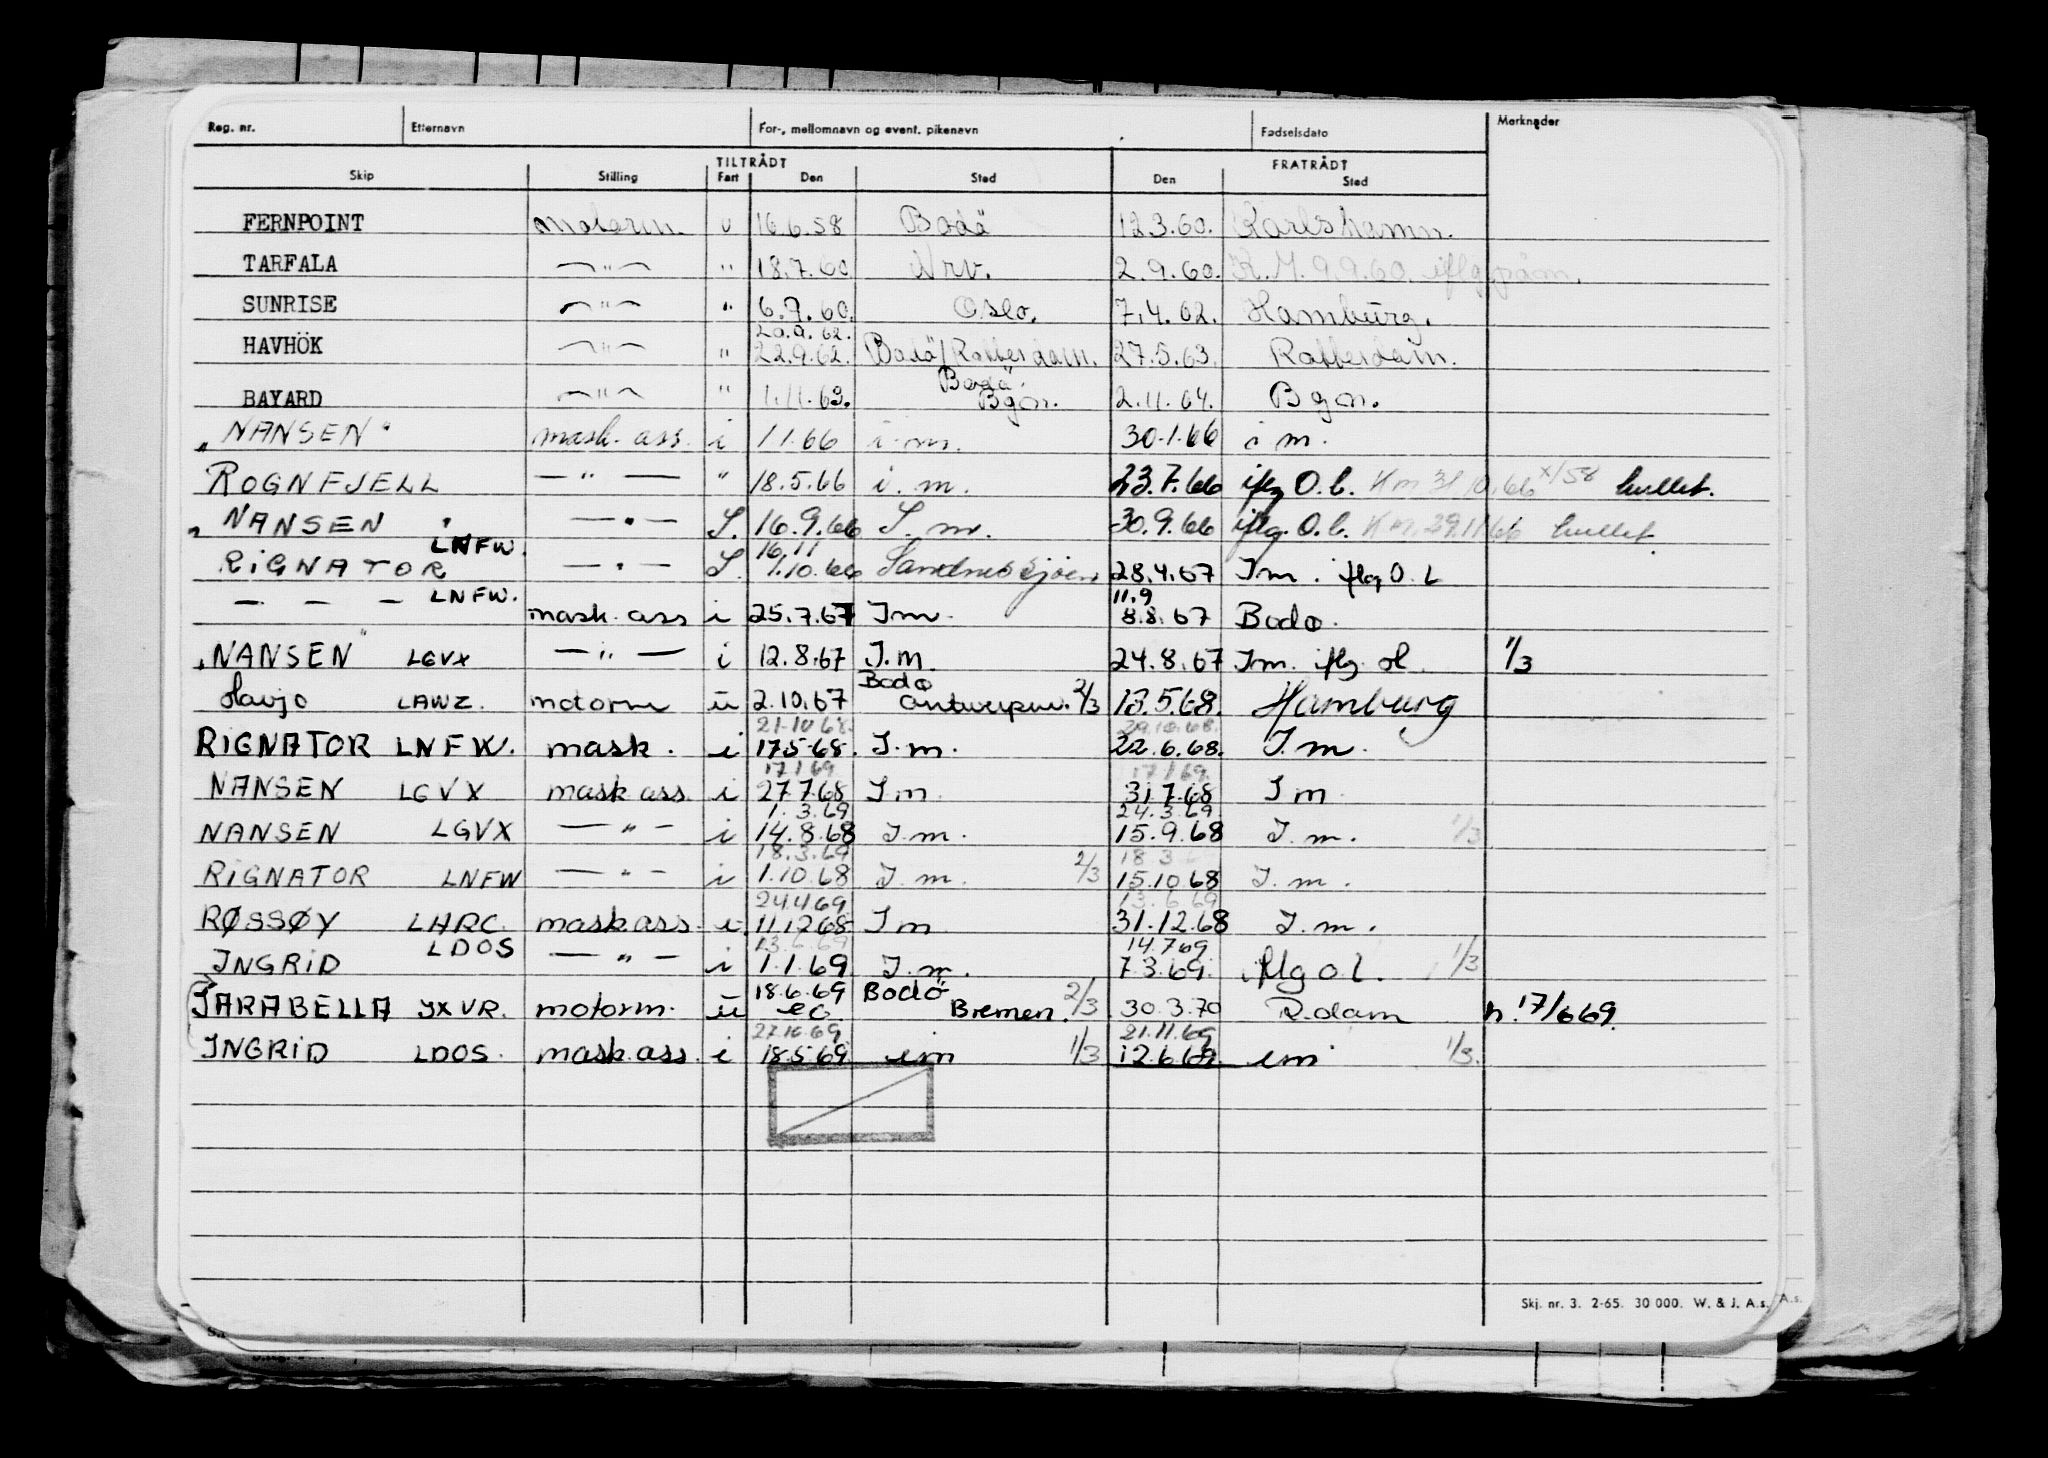 Reg. nr. Etternavn For-, mellomnavn og event. pikenavn Fødselsdato Merknader
TILTRÅDT FRATRÅDT
Skip Stilling Fart Den Sted Den Sted
FERNPOINT motorm. u 16.6.58 Bodö 12.3.60. Karlshamn.
TARFALA —"— " 18.7.60 Nrv. 2.9.60. K.M. 9.9.60. iflg
SUNRISE —"— " 6.9.60. Oslo. 7.4.62. Hamburg.
20.9.62.
HAVHÖK —"— " 22.9.62. Bodö/Rotterdam. 27.5.63. Rotterdam.
Bodö.
BAYARD —"— " 1.11.63. Bgn. 2.11.64. Bgn.
"NANSEN" mask. ass. i 1.1.66 i.m. 30.1.66 i m.
ROGNFJELL — " — " 18.5.66 i.m. 23.7.66 iflg O.l. Km 31.10.66 x/58 hullet.
"NANSEN" — " — S. 16.9.66 S.m. 30.9.66 iflg. O.l. Km. 29.11.66 hullet.
LNFW. 16.11
RiGNATOR — " — S. 1.10.66 Sandnessjøen 28.4.67 I.m. iflg O.L
— — — LNFW. 11.9
mask. ass i 25.7.67 I m. 8.8.67 Bodø.
"NANSEN" LGVX — " — i 12.8.67 I.m. 24.8.67 I.m. iflg. ol. 1/3
Bodø
Havjo LAWZ. motorm u 2.10.67 Antwerpen. 2/3 13.5.68. Hamburg
21.10 68. 29.10.68.
RiGNATOR LNFW. mask. i 17.5.68. I.m. 22.6.68. I.m.
17.1 69 17.1 69.
NANSEN LGVX mask ass. i 27.7.68 I m 31.7.68 I m
1.3.69 24.3.69.
NANSEN LGVX — " — i 14.8.68 I.m. 15.9.68 I.m. 1/3
18.3.69 18 3
RiGNATOR LNFW — " — i 1.10.68 I.m. 2/3 15.10.68 I.m.
24.4.69 13.6.69
RØSSØY LHRC. mask.ass. i 11.12.68 I m 31.12.68 I.m.
LDOS 13.6.69 14.7 69
INGRiD — " — i 1.1.69 I.m. 7.3.69. iflg o l. 1/3
18.6.69 Bodö
JARABELLA JXVR. motorm. ü Bremen. 2/3 30.3.70 R.dam n. 17/6 69.
27.10.69 21.11.69
INGRiD LDOS. mask.ass. i 18.5.69 im 1/3 12.6.69. im 1/3.
Skj. nr. 3. 2-65. 30 000. W. & J. A.s. A.s.